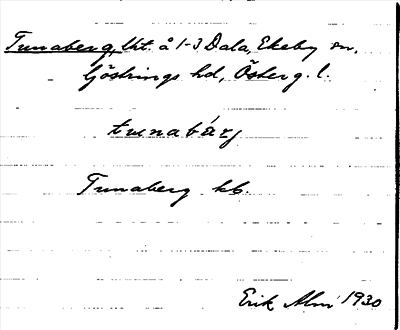 Tunaberg, lht. å 1-3 Dala, Ekeby sn,
Göstrings hd, Österg. l.
tunabärj
Tunaberg kb.
Erik Alm 1930